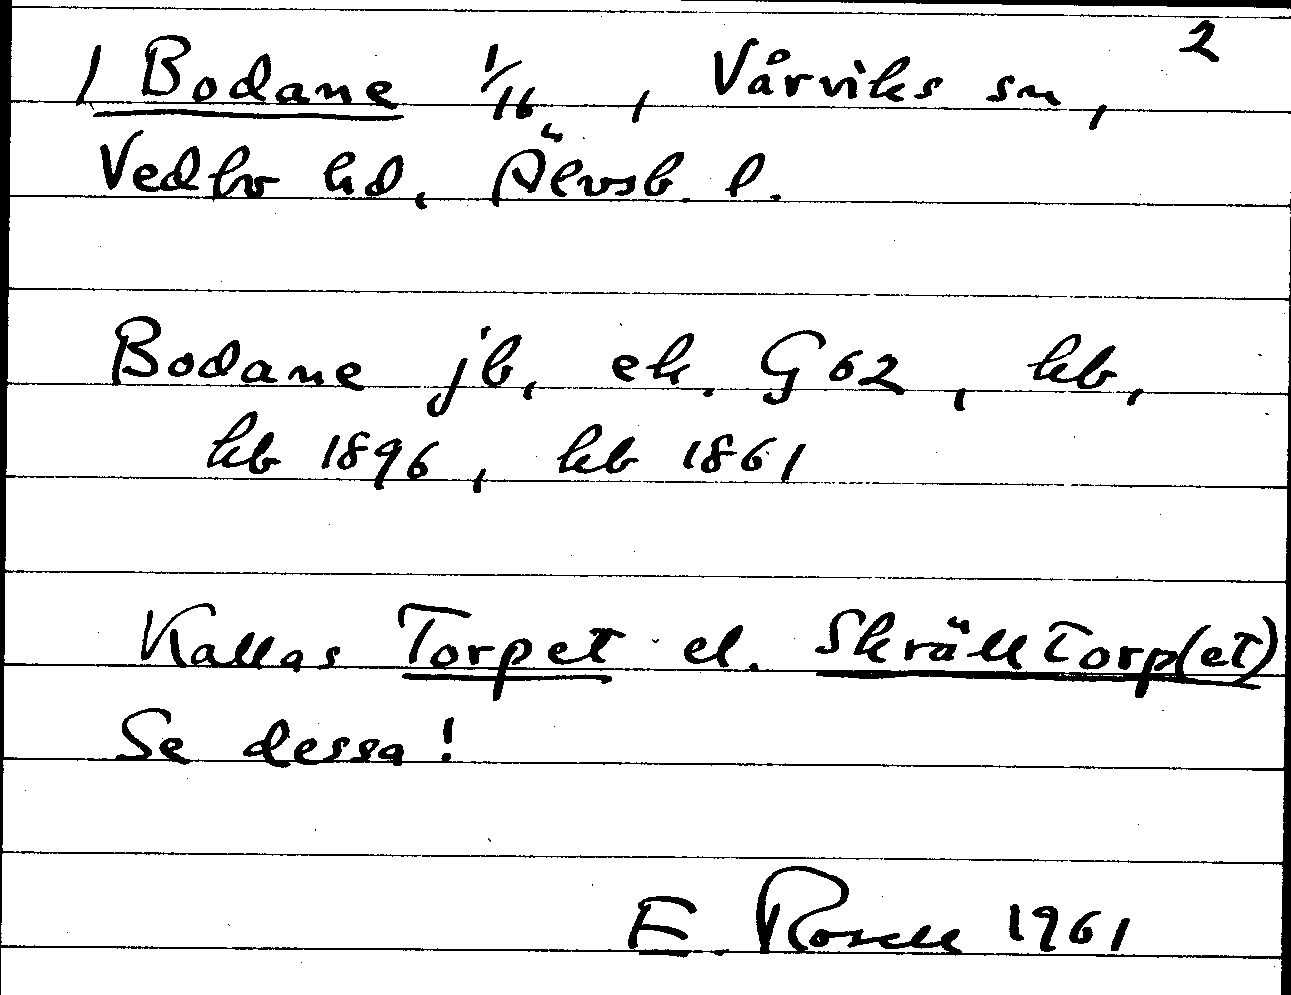 2
1 Bodane 1/16, Vårviks sn,
Vedbo hd, Älvsb. l.
Bodane jb, ek. G 62, kb,
kb 1896, kb 1861
Kallas Torpet el. Skrälltorp(et)
Se dessa!
E. Rosell 1961